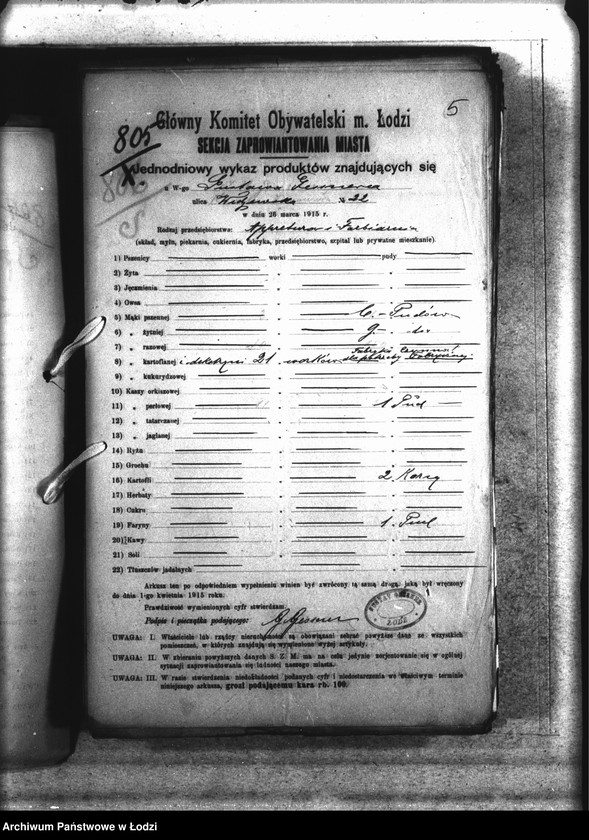 5
805
Główny Komitet Obywatelski m. Łodzi
SEKCJA ZAPROWIANTOWANIA MIASTA
Jednodniowy wykaz produktów znajdujących się
u W-go Gustawa Gessnera
ulica № 22
w dniu 26 marca 1915 r.
Rodzaj przedsiębiorstwa: Appretura i Farbiarnia
(skład, młyn, piekarnia, cukiernia, fabryka, przedsiębiorstwo, szpital lub prywatne mieszkanie).
1) Pszenicy worki pudy
2) Żyta " "
3) Jęczmienia " "
4) Owsa " "
5) Mąki pszennej " 6.- Pudów
6) " żytniej " 9.-
7) " razowej " "
8) " kartoflanej i dekstryny 21 worków
9) " kukurydzowej " "
10) Kaszy orkiszowej " "
11) " perłowej " 1 Pud
12) " tatarczanej " "
13) " jaglanej " "
14) Ryżu " "
15) Grochu " "
16) Kartofli " 2 Korcy
17) Herbaty " "
18) Cukru " "
19) Faryny " 1. Pud
20) Kawy " "
21) Soli " "
22) Tłuszczów jadalnych " "
Arkusz ten po odpowiedniem wypełnieniu winien być zwrócony tą samą drogą, jaką był wręczony
do dnia 1-go kwietnia 1915 roku.
Prawdziwość wymienionych cyfr stwierdzam
Podpis i pieczątka podającego: G. Gessner
GUSTAV GESSNER
ŁODZ
UWAGA: I. Właściciele lub rządcy nieruchomości są obowiązani zebrać powyższe dane ze wszystkich
pomieszczeń, w których znajdują się wymienione wyżej artykuły.
UWAGA: II. W zbieraniu powyższych danych S. Z. M. ma na celu jedynie zorjentowanie się w ogólnej
sytuacji zaprowiantowania się ludności naszego miasta.
UWAGA: III. W razie stwierdzenia niedokładności podanych cyfr i niedostarczenia we właściwym terminie
niniejszego arkusza, grozi podającemu kara rb. 100.
Archiwum Państwowe w Łodzi